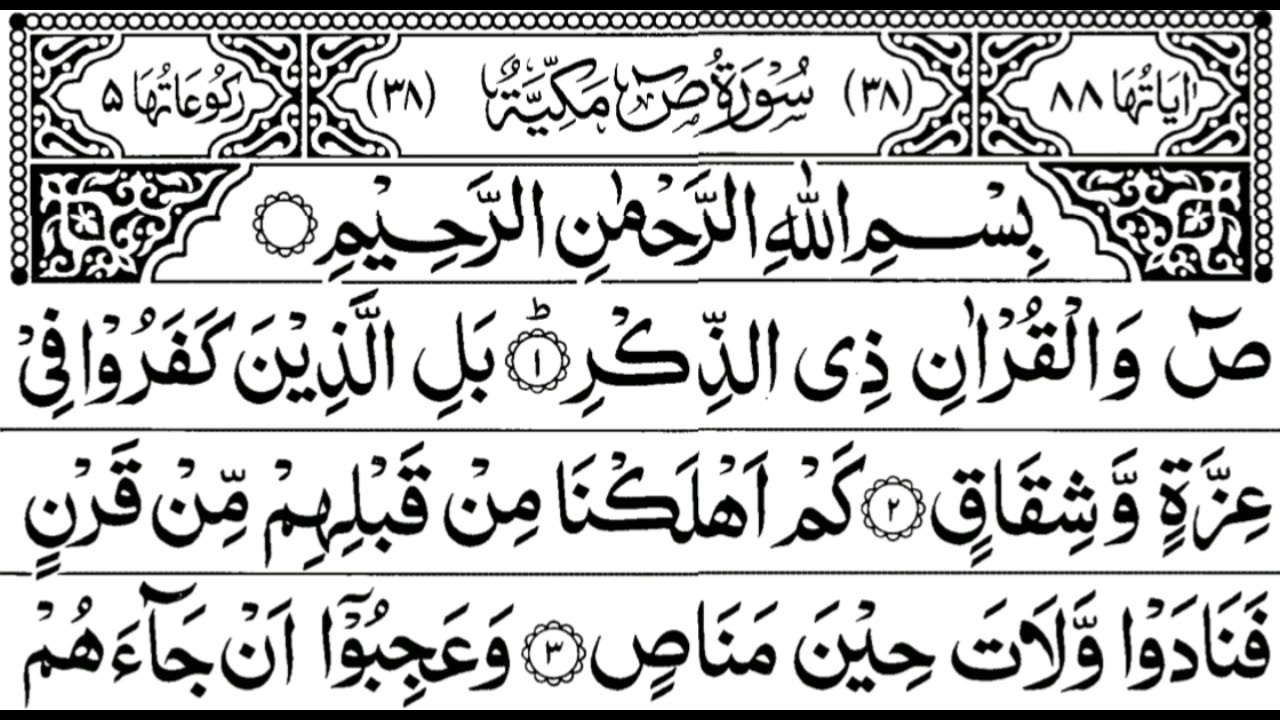 اٰيَاتُهَا ٨٨ (٣٨) سُوْرَةُ صٓ مَكِّيَّةٌ (٣٨) رُكُوْعَاتُهَا ۵
بِسْمِ اللّٰهِ الرَّحْمٰنِ الرَّحِيْمِ
صٓ وَالْقُرْاٰنِ ذِى الذِّكْرِ ؕ﴿١﴾ بَلِ الَّذِيْنَ كَفَرُوْا فِىْ
عِزَّةٍ وَّشِقَاقٍ ﴿٢﴾ كَمْ اَهْلَكْنَا مِنْ قَبْلِهِمْ مِّنْ قَرْنٍ
فَنَادَوْا وَّلَاتَ حِيْنَ مَنَاصٍ ﴿٣﴾ وَعَجِبُوْۤا اَنْ جَآءَهُمْ